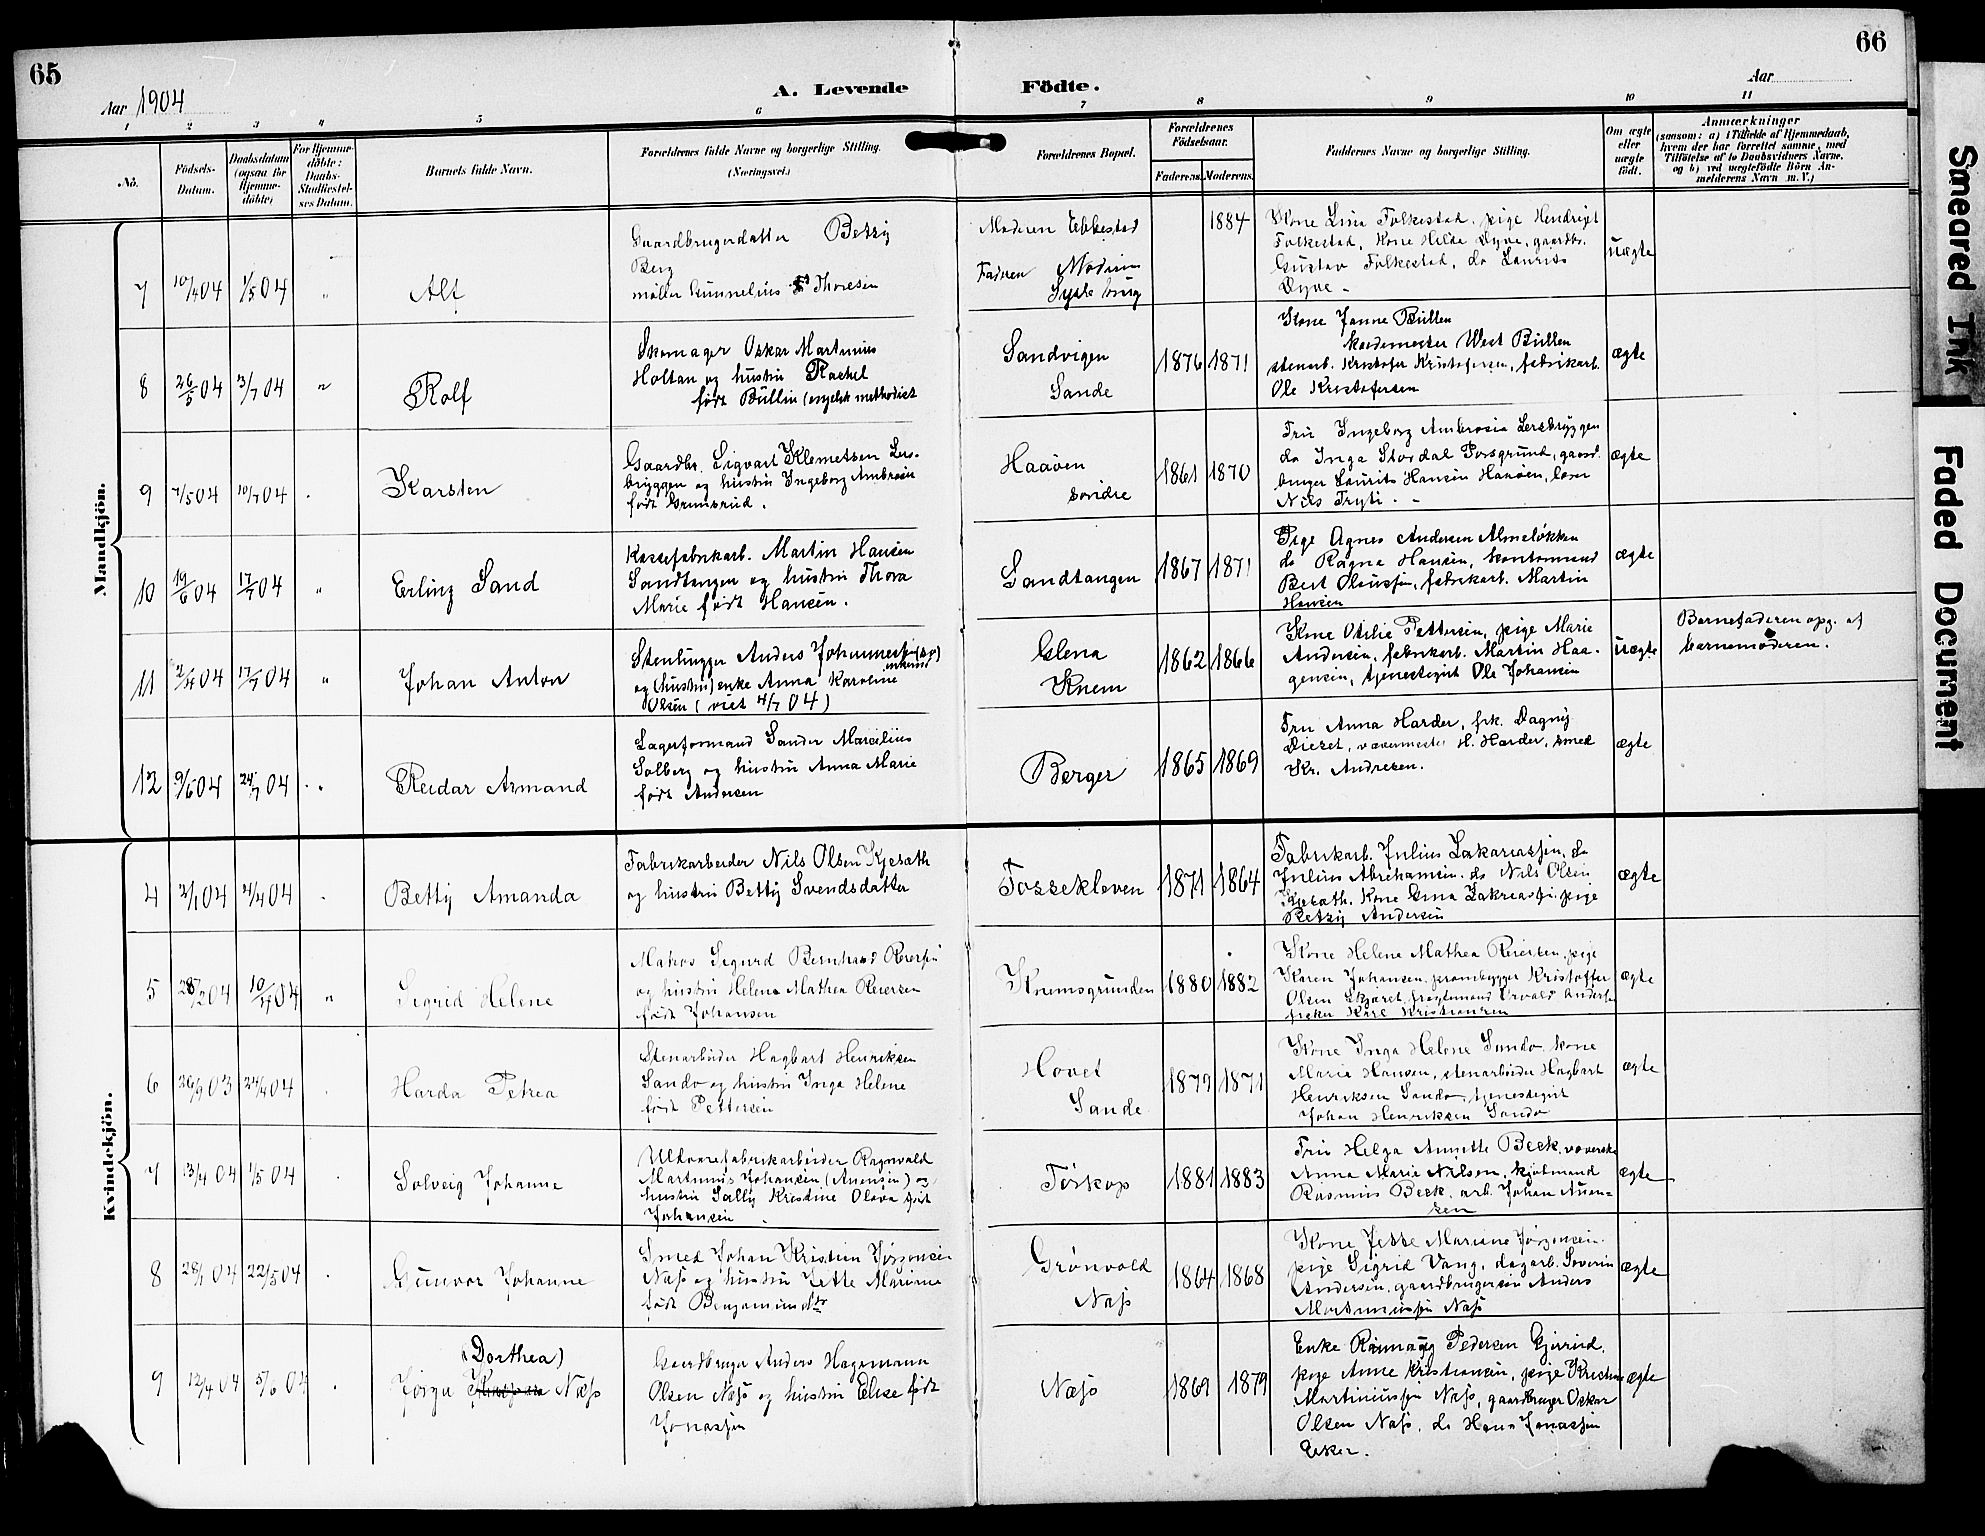 65
66
Aar 1904
A. Levende
Födte.
Aar
1 2 3 4 5 6 7 8 9 10 11
No.
Födsels-
Datum.
Daabsdatum
(ogsaa for
Hjemme-
döbte)
For Hjemme-
döbte:
Daabs-
Stadfæstel-
ses Datum.
Barnets fulde Navn.
Forældrenes fulde Navne og borgerlige Stilling.
(Næringsvei.)
Forældrenes Bopæl.
Forældrenes
Födselsaar.
Faderens. Moderens.
Faddernes Navne og borgerlige Stilling.
Om ægte
eller
uægte
födt.
Anmærkninger
(saasom: a) i Tilfælde af Hjemmedaab,
hvem der har forrettet samme, med
Tilföielse af to Daabsvidners Navne,
og b) ved uægtefödte Börn An-
melderens Navn m. V.)
Mandkjön.
7 10/4 04 1/5 04 " Alf
Gaardbrugerdatter Betzy
Berg
møller Gunnelius Thoresen
Moderen Ebbestad
Faderen
1884
Kone Lina Folkestad, pige Hendrigt
Folkestad, Kone Hilda Dyve, gaardbr.
Gustav Folkestad, do Laurits
Dyve -
uægte
8 26/5 04 3/7 04 " Rolf
Skomager Oskar Martinius
Holtan og hustru Rachel
født Bullin (engelsk methodist
Sandvigen
Sande
1876 1871
Kone Janne Bullen
West Bullen
stenarb. Kristofer Kristofersen, fabrikarb.
Ole Kristofersen
ægte
9 7/5 04 10/7 04 Karsten
Gaardbr. Sigvart Klemetsen Lers-
bryggen og hustru Ingeborg Ambrosia
født Grimsrud.
Haaøen
søndre
1861 1870
Fru Ingeborg Ambrosia Lersbryggen
do Inga Stordal Porsgrund, gaard-
bruger Laurits Hansen Haaøen, løser
Nils Tryti. -
ægte
10 19/6 04 17/7 04 " Erling Sand
Kassefabrikarb. Martin Hansen
Sandtangen og hustru Thora
Marie født Hansen.
Sandtangen
1867 1871
Pige Agnes Andersen Almeløkken
do Ragna Hansen, kontormand
Bert Olaussen, fabrikarb. Martin
Hansen
ægte
11 2/4 04 17/7 04 " Johan Anton
Stenhugger Anders Johannessen
og (hustru) enke Anna Karoline
Olsen (viet 4/7 04)
Elena
Knem
1862 1866
Kone Otilie Pettersen, pige Marie
Andersen, fabrikarb. Martin Haa-
gensen, tjenestegut Ole Johansen
uægte
Barnefaderen opg. af
barnemoderen.
12 9/6 04 24/7 04 " Reidar Armand
Lagerformand Sander Marcilius
Solberg og hustru Anna Marie
født Andersen
Berger
1865 1869
Fru Anna Harder, frk. Dagny
Diezet, vævermester H. Harder, smed
Kr. Andresen.
ægte
Kvindekjön.
4 2/1 04 4/4 04 Betty Amanda
Fabrikarbeider Nils Olsen Kjesath
og hustru Betty Svendsdatter
Fossekleven
1871 1864
Fabrikarb. Julius Zakariassen, do
Julius Abrahamsen, do Nils Olsen
Kjesath. Kone Elma Zakreassen, pige
Betzy Andersen
ægte
5 28/2 04 10/4 04 " Sigrid Helene
Matros Sigurd Bernhard Reiersen
og hustru Helene Mathea Reiersen
født Johansen
Knemsgrunden
1880 1882
Kone Helene Mathea Reiersen, pige
Karen Johansen, prambygger Kristoffer
Olsen
fisker Karl Kristiansen
ægte
6 29/9 03 24/4 04 Harda Petrea
Stenarbeider Hagbart Henriksen
Sando og hustru Inga Helene
født Pettersen
Hovet
Sande
1879 1871
Kone Inga Helene Sando, kone
Maria Hansen, stenarbeider Hagbart
Henriksen Sando, tjenestegut
Johan Henriksen Sando
ægte
7 13/4 04 1/5 04 Solveig Johanne
Uldvarefabrikarbeider Ragnvald
Martinius Johansen, (Auensen) og
hustru Sally Kristine Olava født
Johansen
Førskop
1881 1883
Fru Helga Annette Beck, væverske
Anna Marie Nilsen, kjøbmand
Rasmus Beck, arb. Johan Auen-
sen
ægte
8 28/1 04 22/5 04 Gunvor Johanne
Smed Johan Kristian Jørgensen
Næss og hustru Jette Marine
født Benjaminsdtr
Grønvold
Næss
1864 1868
Kone Jette Marine Jørgensen.
pige Sigrid Vang, dagarb. Severin
Andersen, gaardbrugersøn Anders
Martiniussen Næss
ægte
9 12/4 04 5/6 04 (Dorthea)
Jørga Næss
Gaardbruger Anders Hagemann
Olsen Næss og hustru Elise født
Jonassen
Næss
1869 1879
Enke Pedersen Gjerud,
pige Anne Kristiansen, pige Kristine
Martiniussen Næss, gaardbruger Oskar
Olsen Næss, do Hans Jonassen
Esker.
ægte
Smeared Ink
Faded Document